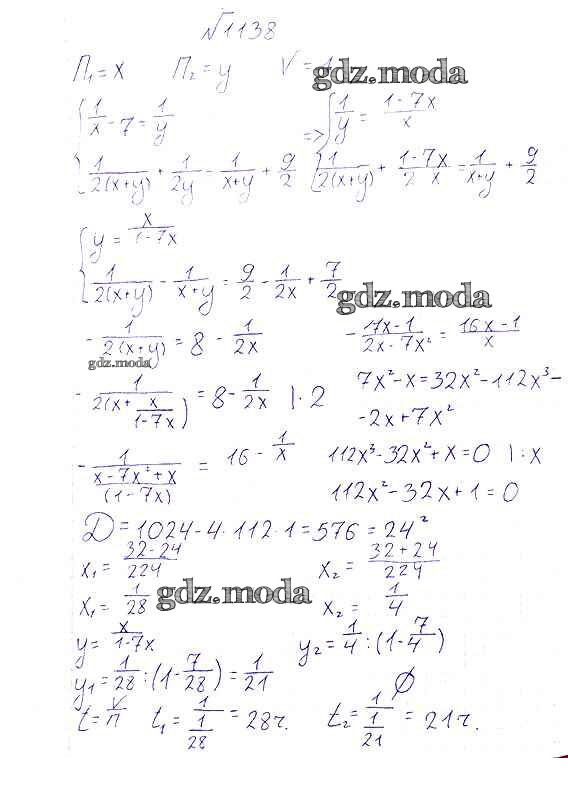 √1138
П₁ = x П₂ = y V = 1
gdz.moda
{ 1/x - 7 = 1/y => { 1/y = (1-7x)/x
{ 1/(2(x+y)) + 1/(2y) - 1/(x+y) + 9/2 { 1/(2(x+y)) + (1-7x)/(2 x) = 1/(x+y) + 9/2
{ y = x/(1-7x)
{ 1/(2(x+y)) - 1/(x+y) = 9/2 - 1/(2x) + 7/2
gdz.moda
- 1/(2(x+y)) = 8 - 1/(2x)
gdz.moda
- 1/(2(x + x/(1-7x))) = 8 - 1/(2x) | · 2
- 1/((x-7x²+x)/(1-7x)) = 16 - 1/x
- (7x-1)/(2x-7x²) = (16x-1)/x
7x²-x=32x²-112x³-
-2x+7x²
112x³-32x²+x=0 |:x
112x²-32x+1=0
D = 1024-4·112·1=576=24²
x₁ = (32-24)/224 x₂ = (32+24)/224
gdz.moda
x₁ = 1/28 x₂ = 1/4
y = x/(1-7x) y₂ = 1/4 : (1 - 7/4)
y₁ = 1/28 : (1 - 7/28) = 1/21 ∅
t = V/П t₁ = 1/(1/28) = 28ч. t₂ = 1/(1/21) = 21ч.